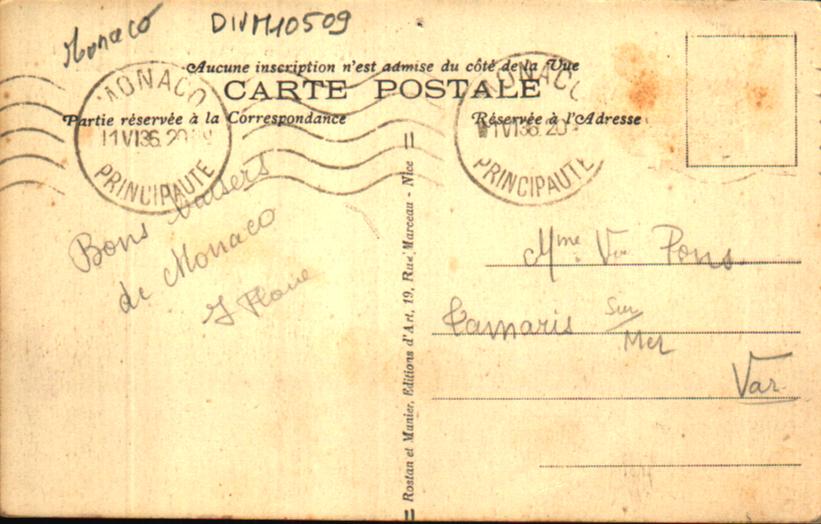 Monaco
DIVM10509
Aucune inscription n'est admise du côté de la Vue
CARTE POSTALE
Partie réservée à la Correspondance
Réservée à l'Adresse
MONACO
11 VI 36 20
PRINCIPAUTE
MONACO
11 VI 36. 20
PRINCIPAUTE
Bons baisers
de Monaco
Rostan et Munier, Editions d'Art, 19, Rue Marceau - Nice
Mme Vve Pons.
Tamaris sur
Mer
Var